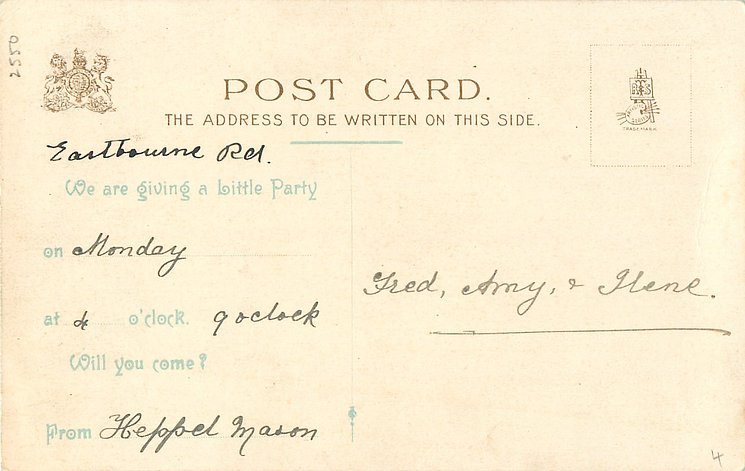 2550
POST CARD.
THE ADDRESS TO BE WRITTEN ON THIS SIDE.
TRADE MARK.
Eastbourne Rd.
We are giving a Little Party
on Monday
at 4 o'clock. 9 oclock
Will you come?
From Heppel Mason
Fred, Amy, & Ilene.
4